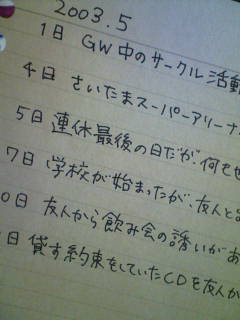 2003.5
1日 GW中のサークル活動
4日 さいたまスーパーアリーナ
5日 連休最後の日だが、何もせ
7日 学校が始まったが、友人と
0日 友人から飲み会の誘いがあ
日 貸す約束をしていたCDを友人か